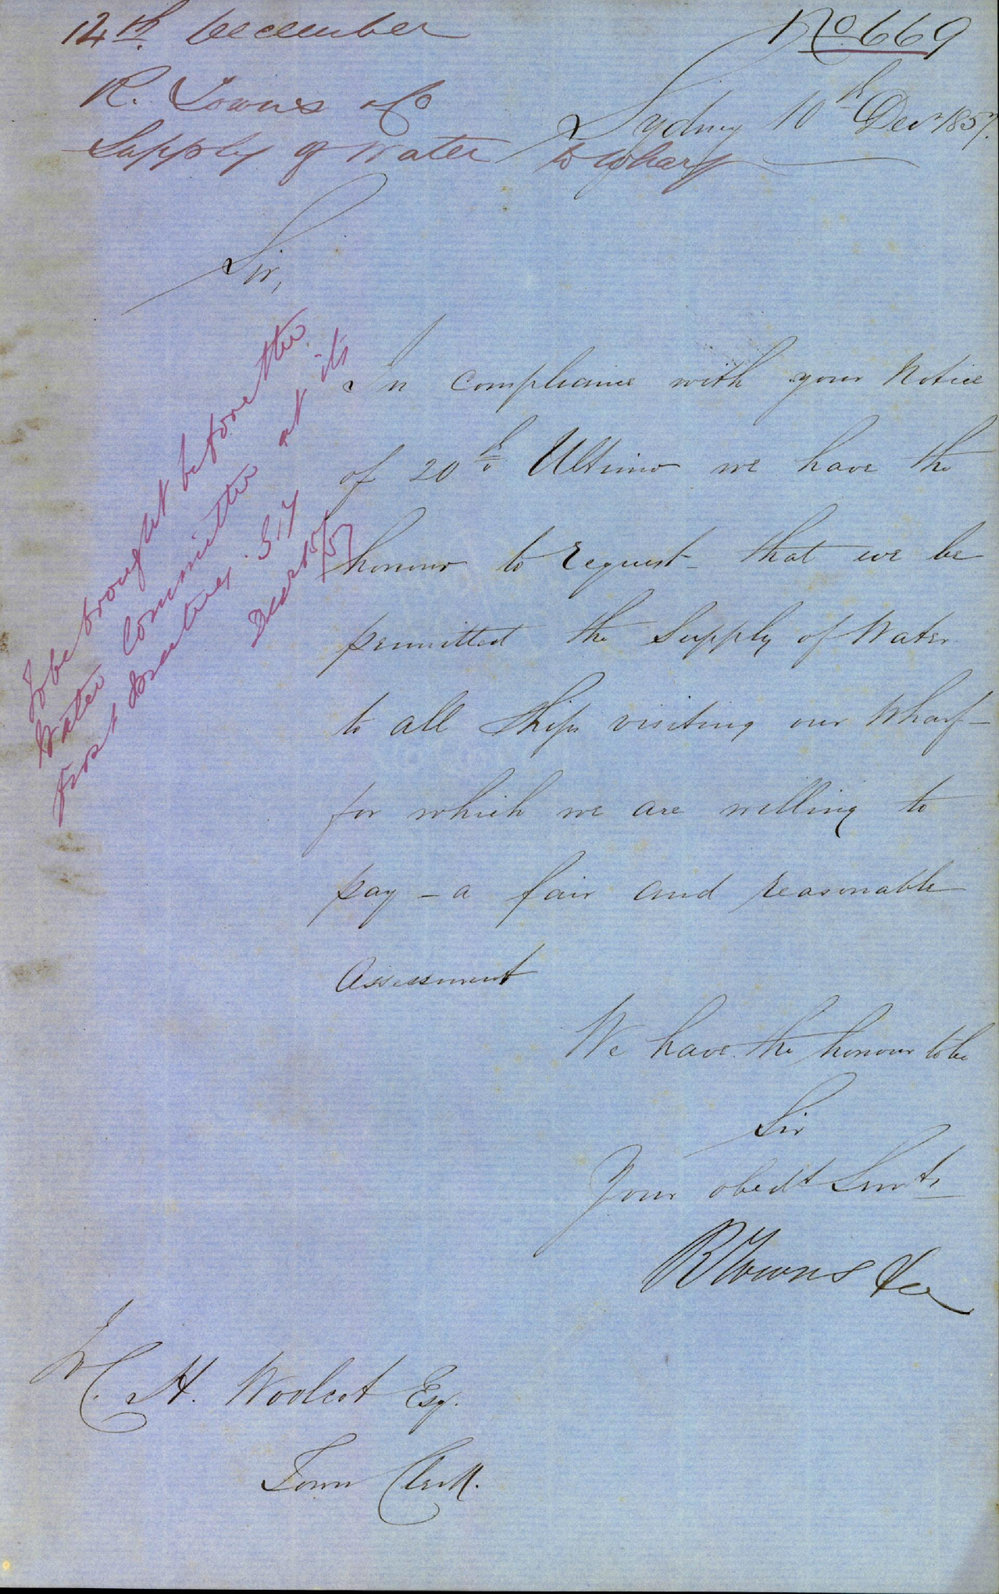 12th December
No. 669
R. Towns & Co
Sydney 10th Decr 1857.
Supply of Water to Wharf
Sir,
In compliance with your Notice
of 20th Ultimo we have the
honour to request that we be
permitted the Supply of Water
to all Ships visiting our Wharf
for which we are willing to
pay - a fair and reasonable
Assessment
We have the honour to be
Sir
Your obedt Servts
R Towns & Co
To be brought before the
Water Committee at its
first Meeting
Decr 15/57
W. C. H. Woolcot Esq.
Town Clerk.